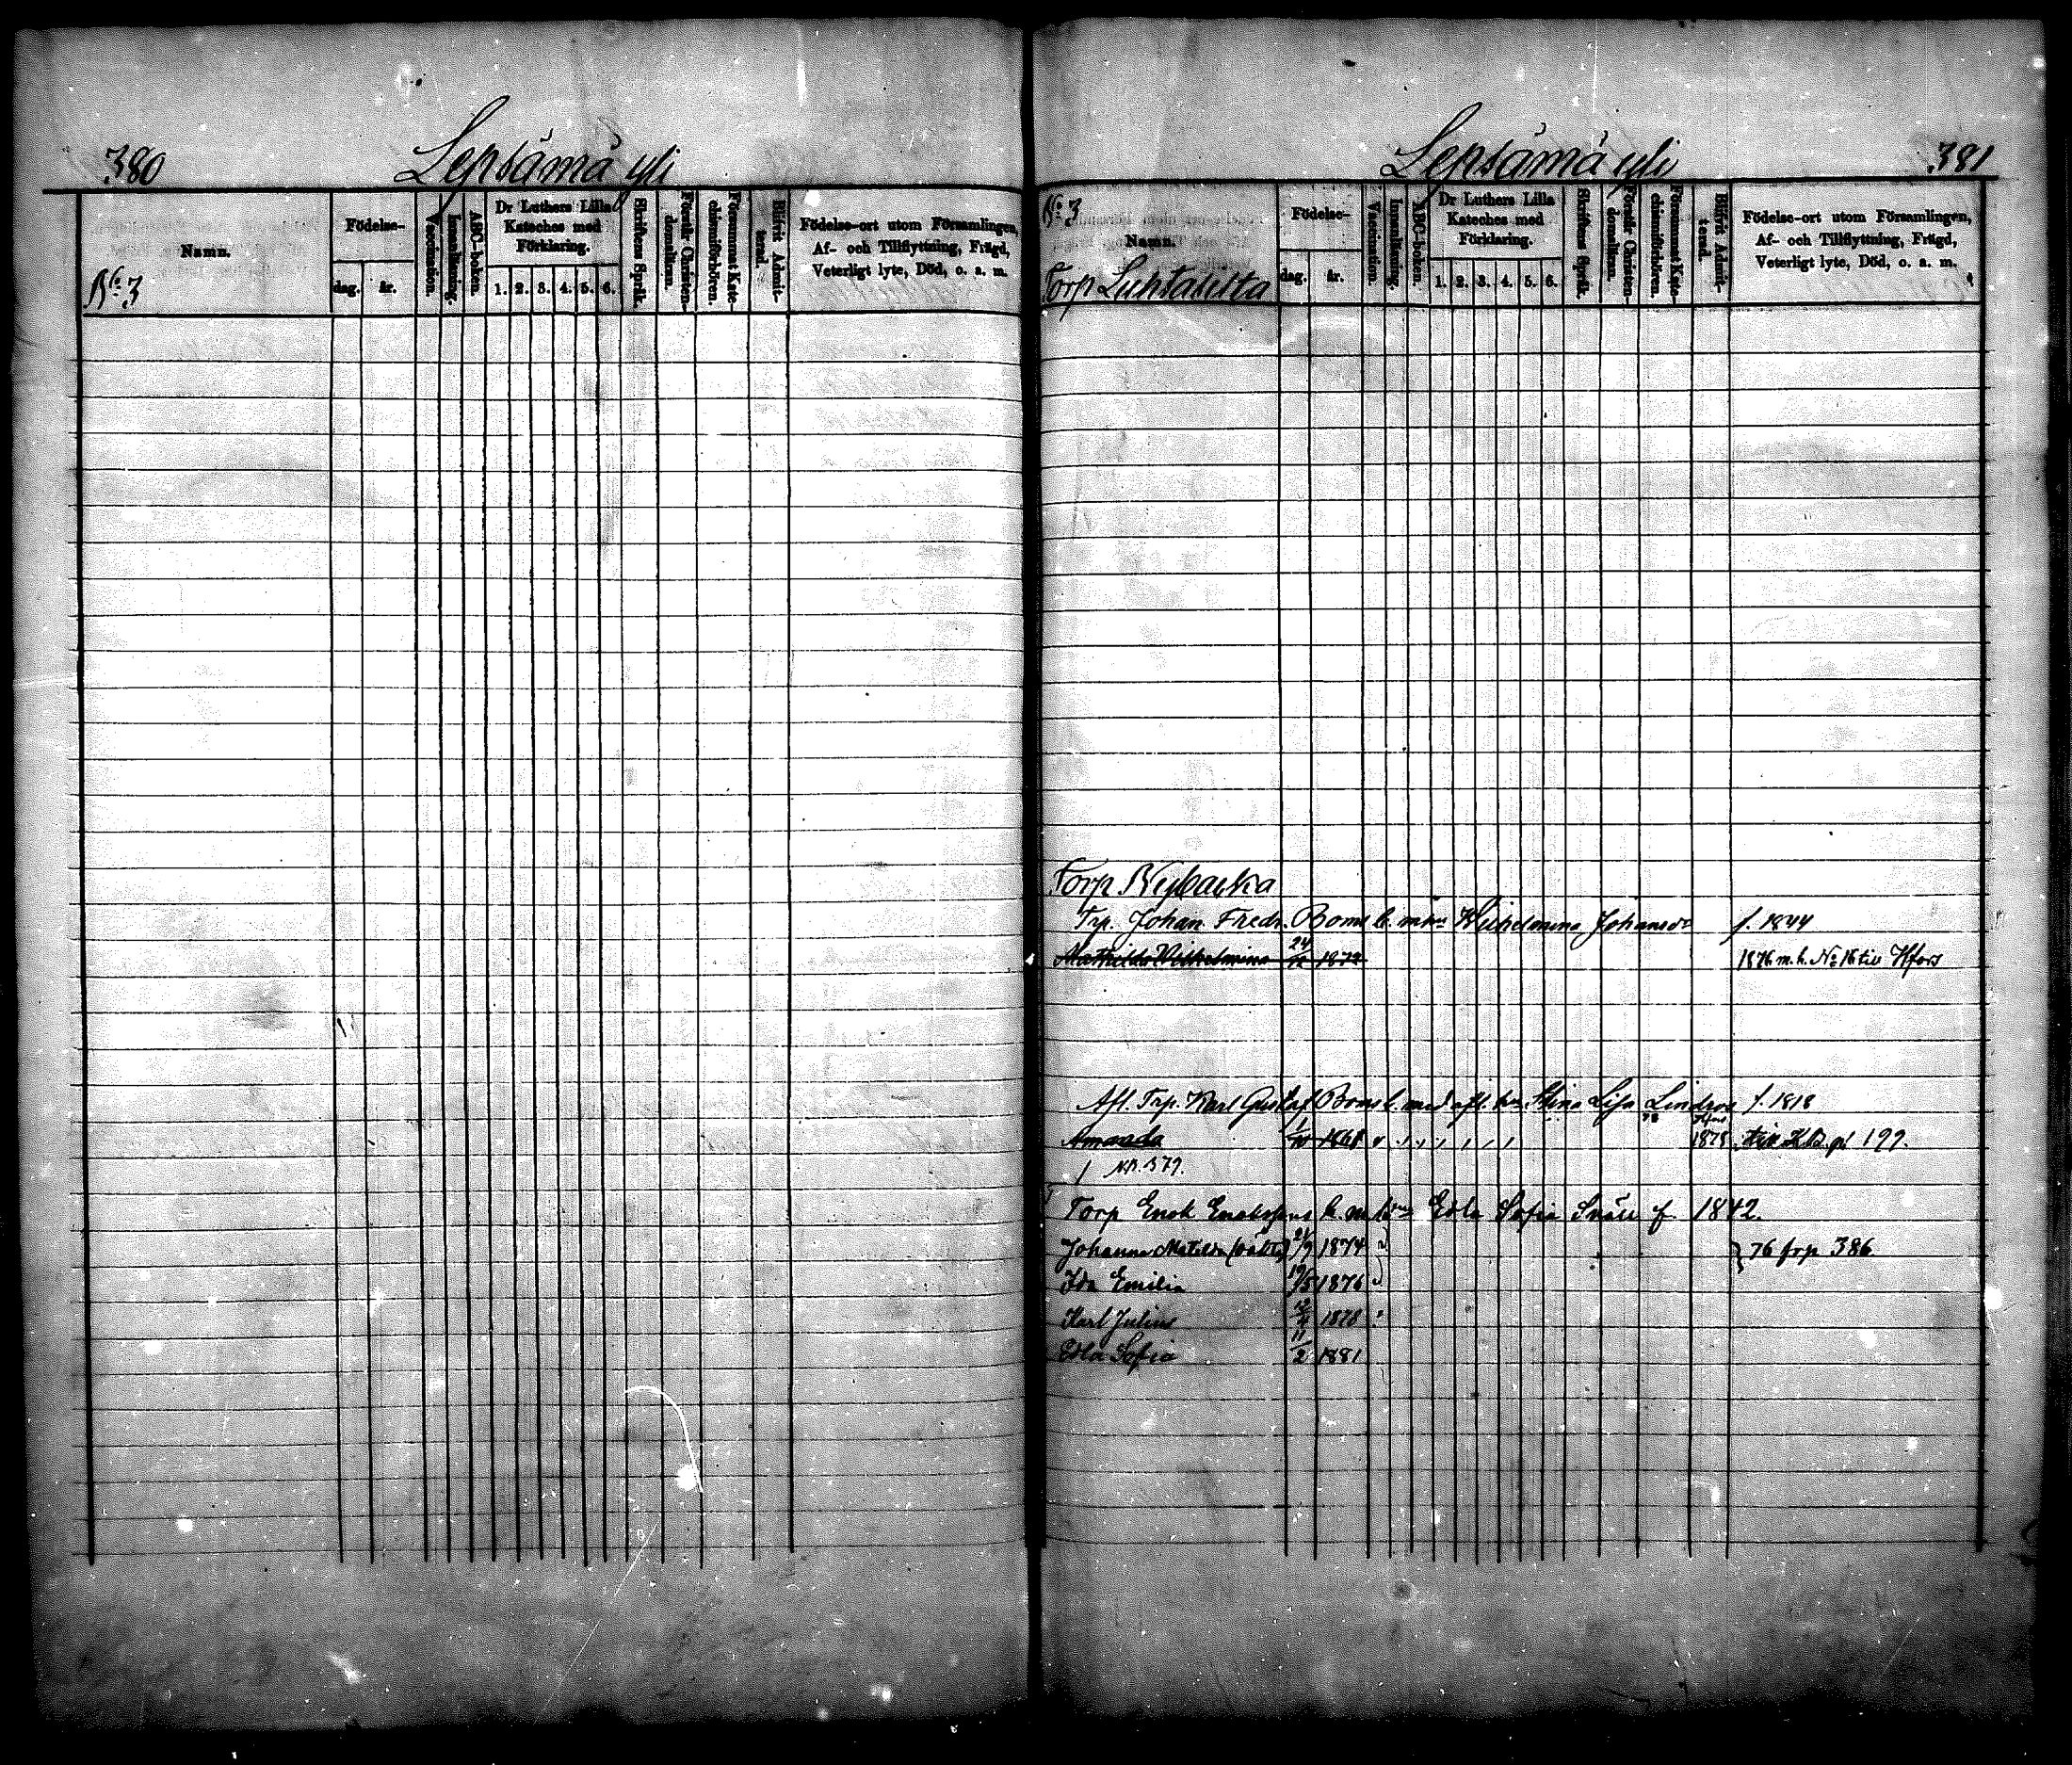 380 Lepsämä yli
Namn.
Födelse-
dag. år.
Vaccination.
Innanläsning.
ABC-boken.
Dr Luthers Lilla Kateches med Förklaring.
1. 2. 3. 4. 5. 6.
Skriftens Språk.
Förstår Christendomslären.
Försummat Katechismiförhören.
Blifvit Admitterad.
Födelse-ort utom Församlingen,
Af- och Tillflyttning, Frägd,
Veterligt lyte, Död, o. a. m.
No 3
Lepsämä yli 381
No 3
Namn.
Torp Luhtaletta
Födelse-
dag. år.
Vaccination.
Innanläsning.
ABC-boken.
Dr Luthers Lilla Kateches med Förklaring.
1. 2. 3. 4. 5. 6.
Skriftens Språk.
Förstår Christendomslären.
Försummat Katechismiförhören.
Blifvit Admitterad.
Födelse-ort utom Församlingen,
Af- och Tillflyttning, Frägd,
Veterligt lyte, Död, o. a. m.
Torp Nybacka
Trp. Johan Fredr. Boms b. m hu Wilhelmina Johansdr f. 1844
Mathilda Wilhelmina 24/12 1872 1876 m. b. No 16 till Hfors
Afl. Trp. Karl Gustaf Boms b. med afl. hu Stina Lisa Lindroos f. 1818
Amanda 1/10 1861 1878 till pag 199.
N.B. 379.
Torp Enok Enoksons b. m hu Edla Sofia Snäll f. 1842.
Johanna Matilda 21/9 1874 } 76 frp 386
Ida Emilia 19/5 1876
Karl Julius 12/4 1878
Edla Sofia 11/2 1881